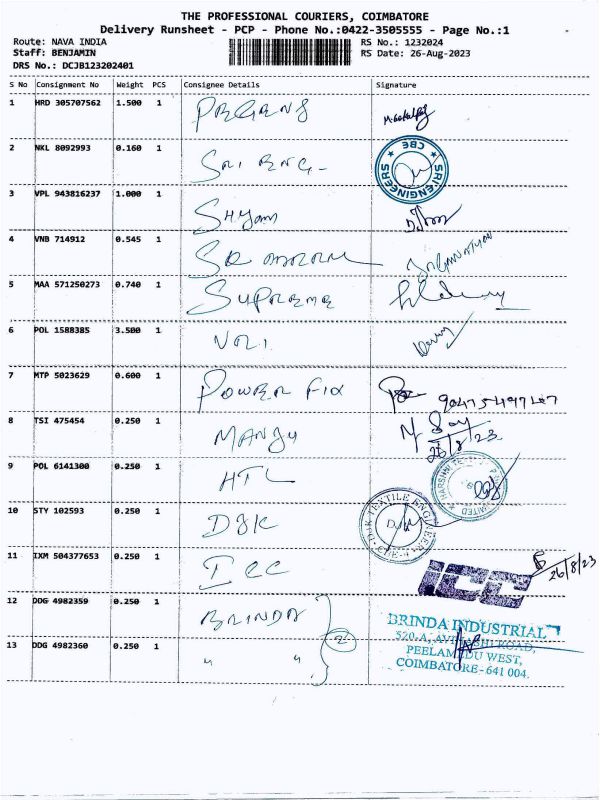 THE PROFESSIONAL COURIERS, COIMBATORE
Delivery Runsheet - PCP - Phone No.:0422-3505555 - Page No.:1
Route: NAVA INDIA RS No.: 1232024
Staff: BENJAMIN RS Date: 26-Aug-2023
DRS No.: DCJB123202401
S No Consignment No Weight PCS Consignee Details Signature
1 HRD 305707562 1.500 1
2 NKL 8092993 0.160 1 SRI ENG- SRI ENGINEERS CBE
3 VPL 943816237 1.000 1 SHYam
4 VNB 714912 0.545 1
5 MAA 571250273 0.740 1 SUPREME
6 POL 1588385 3.500 1
7 MTP 5023629 0.600 1 POWER FIX
8 TSI 475454 0.250 1 MANJU 26/8/23
9 POL 6141300 0.250 1 HTL
10 STY 102593 0.250 1 DJK DJK TEXTILE ENGINEERS
11 IXM 504377653 0.250 1 ICC ICC 26/8/23
12 DDG 4982359 0.250 1 BRINDA
BRINDA INDUSTRIAL
520-A, AVINASHI ROAD,
13 DDG 4982360 0.250 1 " " 2
PEELAMEDU WEST,
COIMBATORE-641 004.